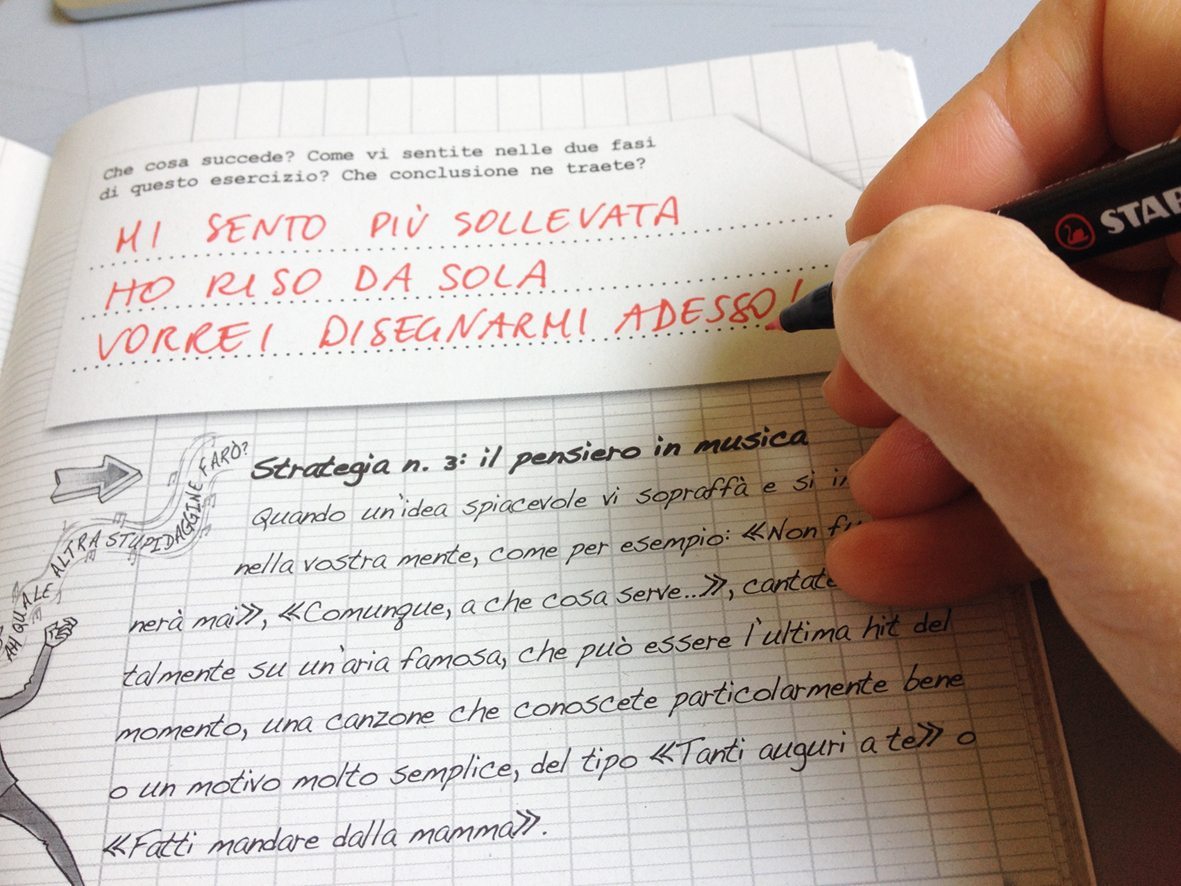 Che cosa succede? Come vi sentite nelle due fasi
di questo esercizio? Che conclusione ne traete?
MI SENTO PIÙ SOLLEVATA
HO RISO DA SOLA
VORREI DISEGNARMI ADESSO!
STAB
AH QUALE ALTRA STUPIDAGGINE FARÒ?
Strategia n. 3: il pensiero in musica
Quando un'idea spiacevole vi sopraffà e si
nella vostra mente, come per esempio: «Non
nerà mai», «Comunque, a che cosa serve..», cantate
talmente su un'aria famosa, che può essere l'ultima hit del
momento, una canzone che conoscete particolarmente bene
o un motivo molto semplice, del tipo «Tanti auguri a te» o
«Fatti mandare dalla mamma».